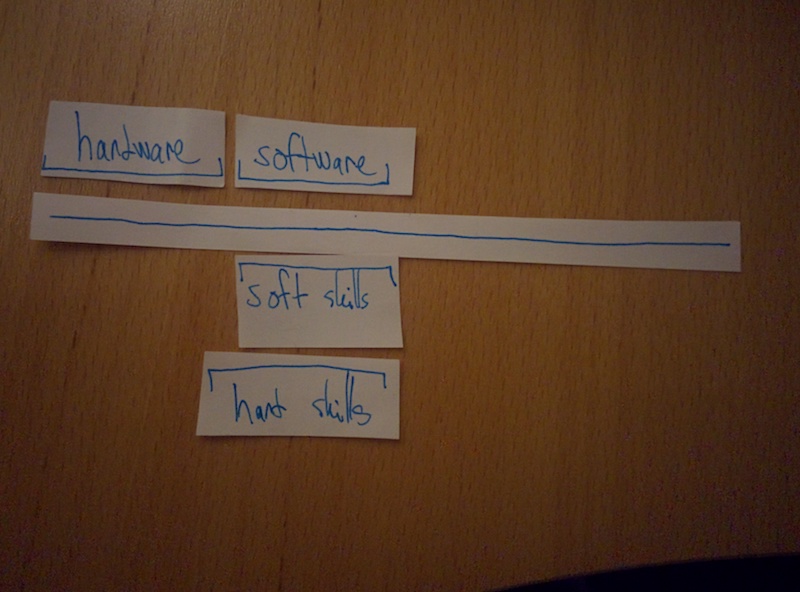 hardware
software
soft skills
hard skills